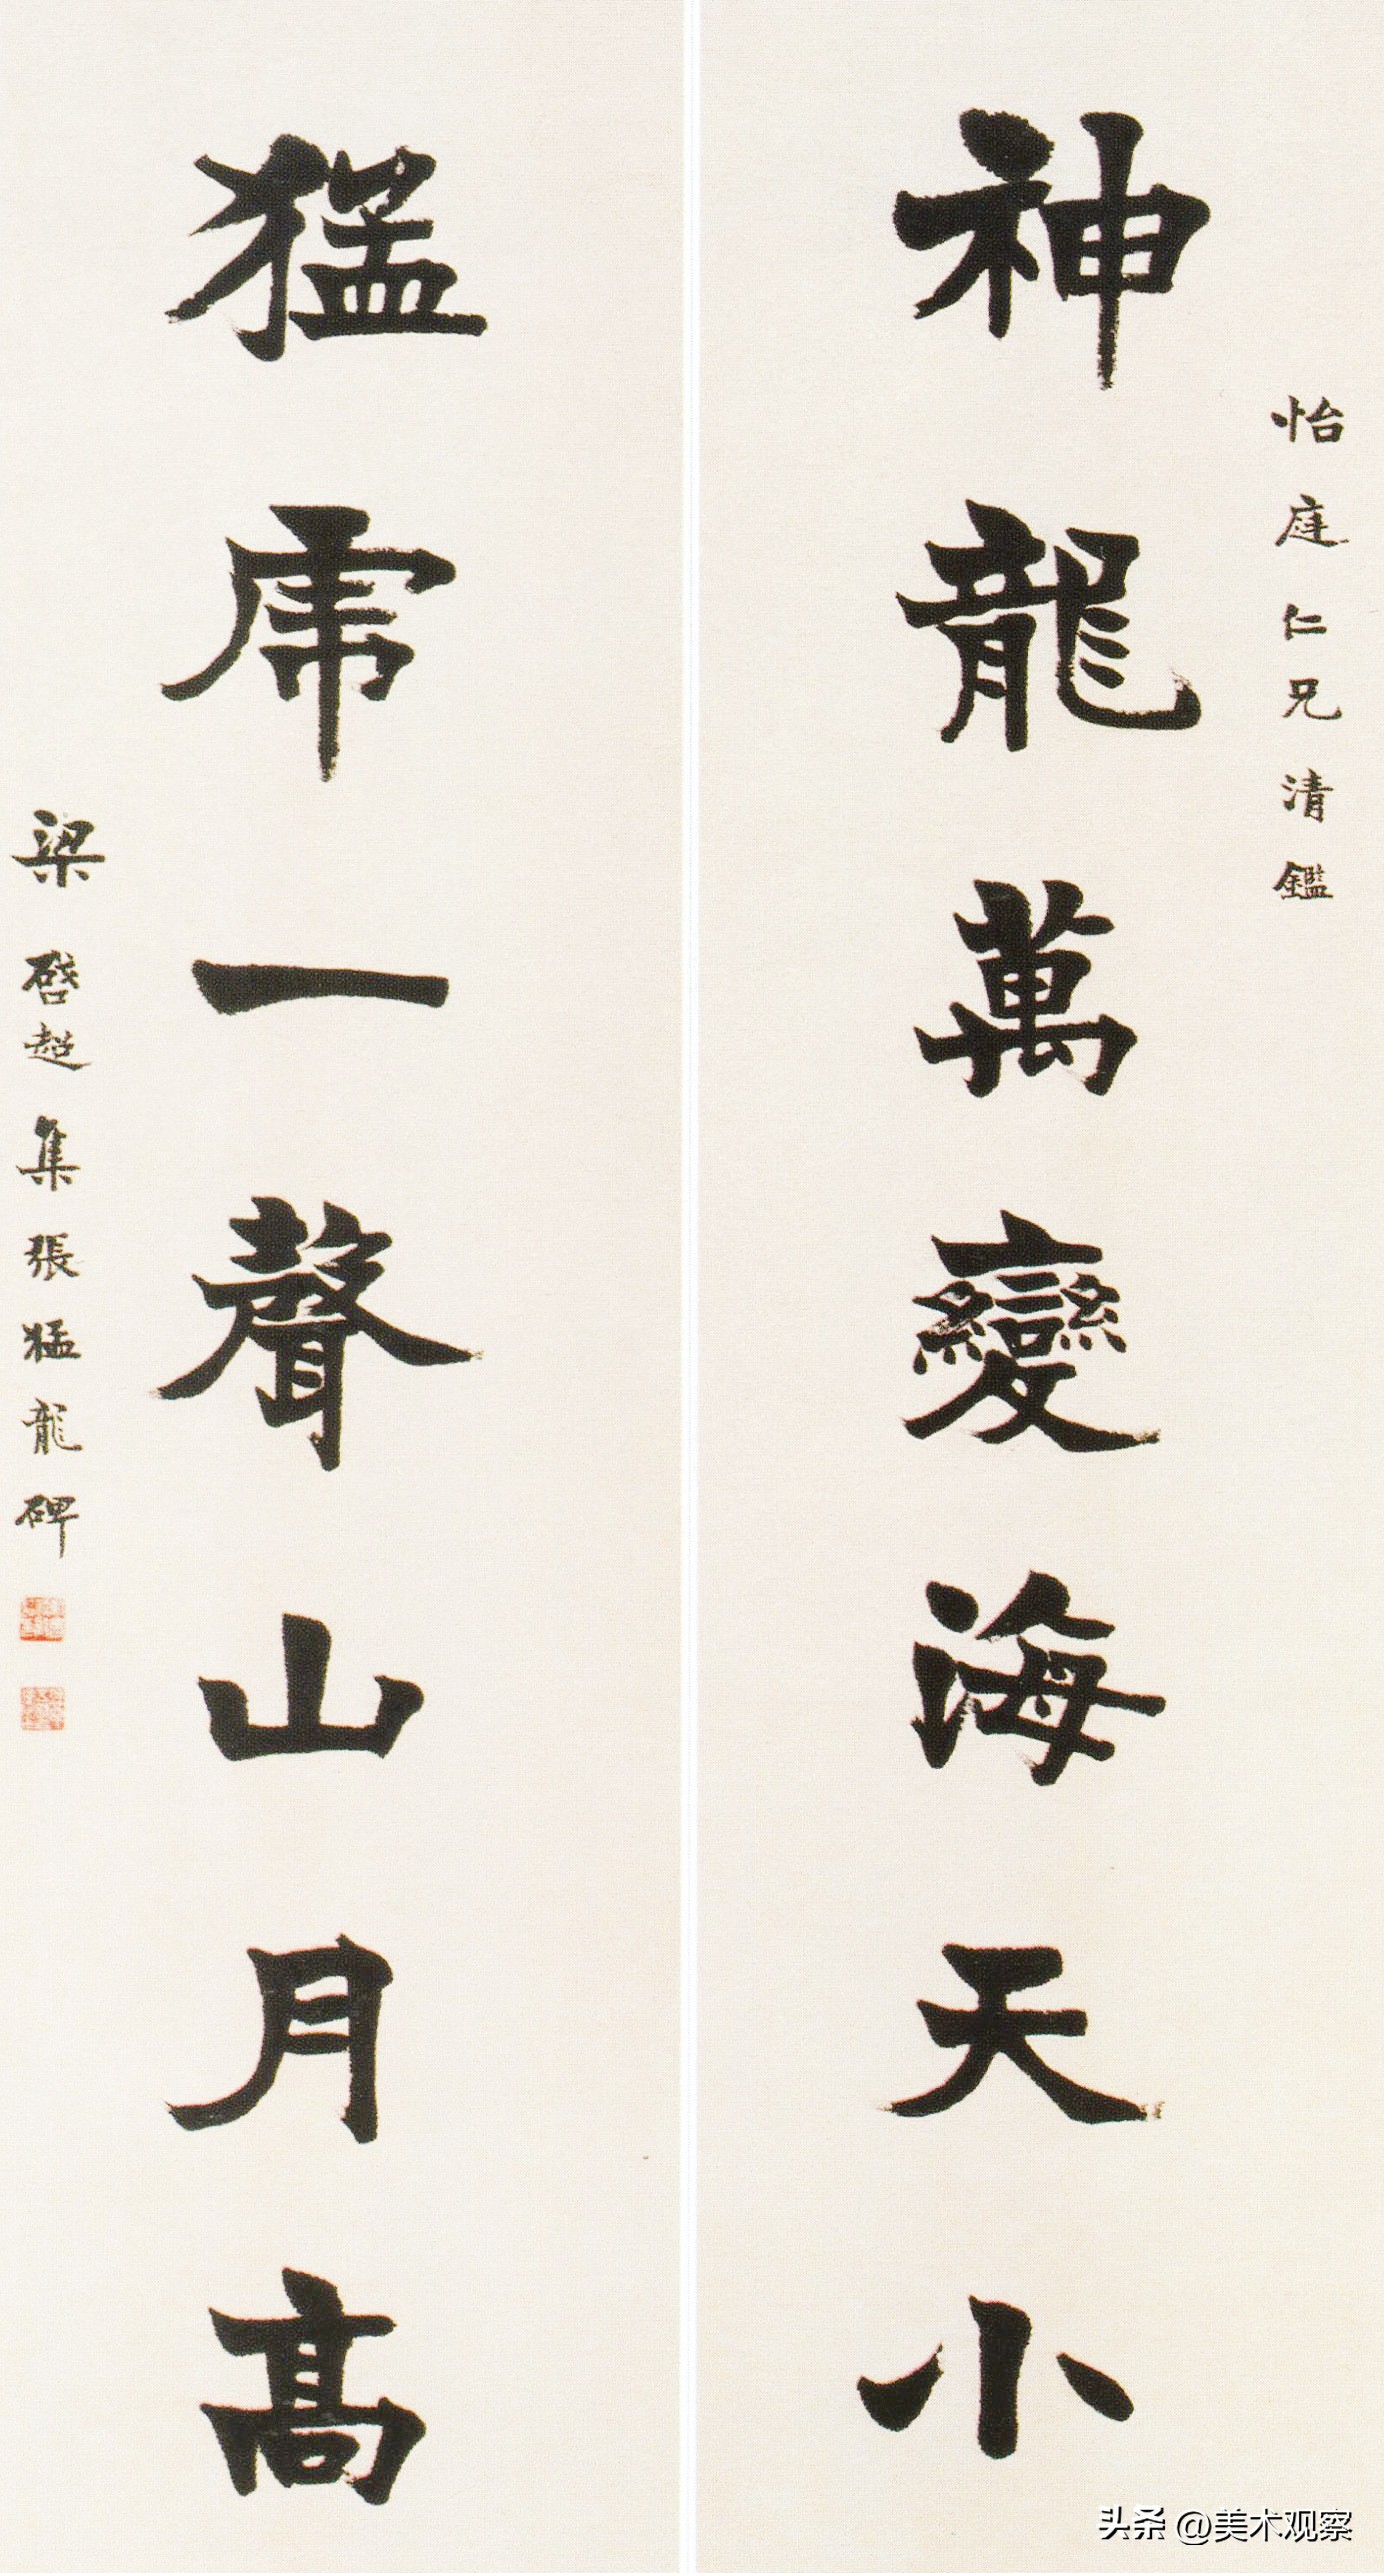 怡庭仁兄清鑑
神龍萬變海天小
猛虎一聲山月高
梁啓超集張猛龍碑
头条 @美术观察